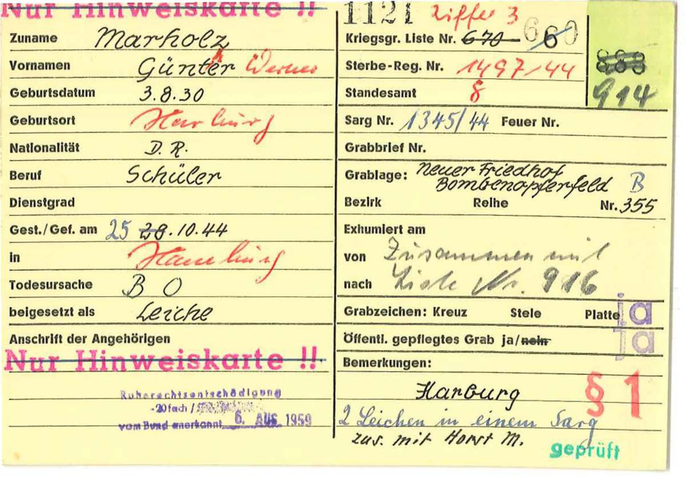 Nur Hinweiskarte !!
Zuname Marholz
Vornamen Günther Werner
Geburtsdatum 3.8.30
Geburtsort Harburg
Nationalität D.R.
Beruf Schüler
Dienstgrad
Gest./Gef. am 25 28.10.44
in Hamburg
Todesursache B O
beigesetzt als Leiche
Anschrift der Angehörigen
Nur Hinweiskarte !!
Ruherechtsentschädigung
-20fach /
vom Bund anerkannt 6. AUG. 1959
1121 Ziffer 3
Kriegsgr. Liste Nr. 670 660
Sterbe-Reg. Nr. 1497/44
888
Standesamt 8
914
Sarg Nr. 1345/44 Feuer Nr.
Grabbrief Nr.
Grablage: Neuer Friedhof
Bombenopferfeld B
Bezirk Reihe Nr. 355
Exhumiert am
von Zusammen mit
nach Liste Nr. 916
Grabzeichen: Kreuz Stele Platte ja
Öffentl. gepflegtes Grab ja/nein ja
Bemerkungen:
Harburg § 1
2 Leichen in einem Sarg
zus. mit Horst M.
geprüft